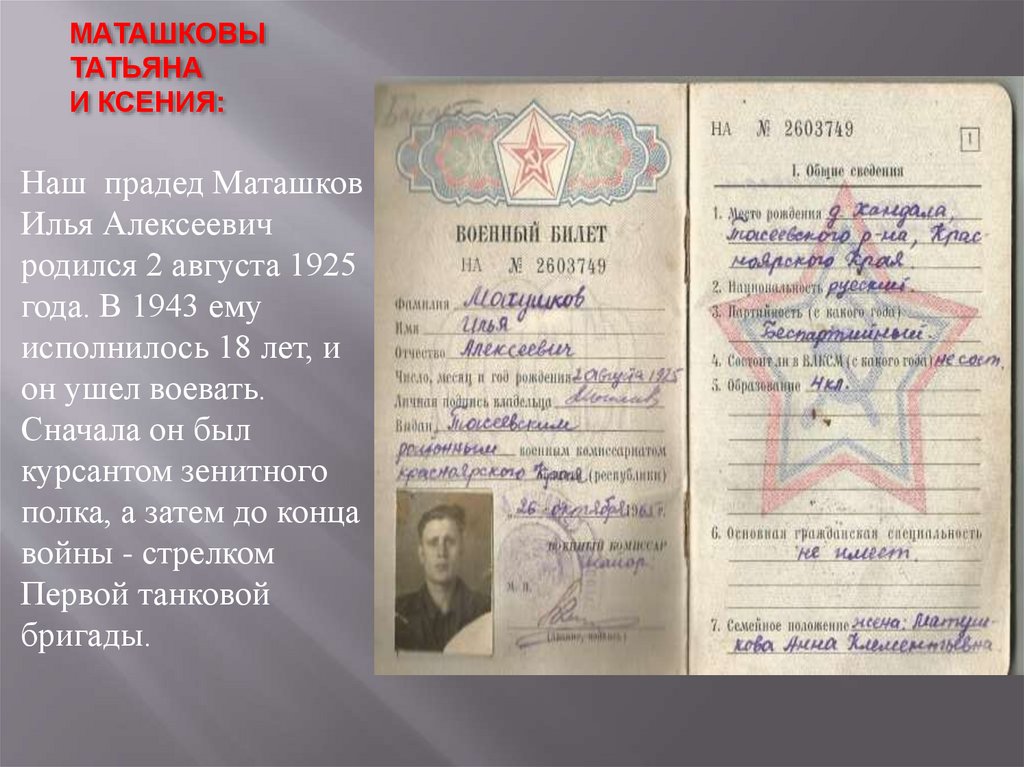 МАТАШКОВЫ
ТАТЬЯНА
И КСЕНИЯ:
Наш прадед Маташков
Илья Алексеевич
родился 2 августа 1925
года. В 1943 ему
исполнилось 18 лет, и
он ушел воевать.
Сначала он был
курсантом зенитного
полка, а затем до конца
войны - стрелком
Первой танковой
бригады.
ВОЕННЫЙ БИЛЕТ
НА № 2603749
Фамилия Матушков
Имя Илья
Отчество Алексеевич
Число, месяц и год рождения 2 августа 1925
Личная подпись владельца
Выдан Тасеевским
районным военным комиссариатом
красноярского Края (республики)
26 октября 196 г.
ВОЕННЫЙ КОМИССАР
майор
М. П.
(звание, подпись)
НА № 2603749
1
I. Общие сведения
1. Место рождения д. Хандала,
Тасеевского р-на, Крас-
ноярского Края.
2. Национальность русский.
3. Партийность (с какого года)
Беспартийный.
4. Состоит ли в ВЛКСМ (с какого года) не сост.
5. Образование 4 кл.
6. Основная гражданская специальность
не имеет.
7. Семейное положение жена: Матуш-
кова Анна Клементьевна